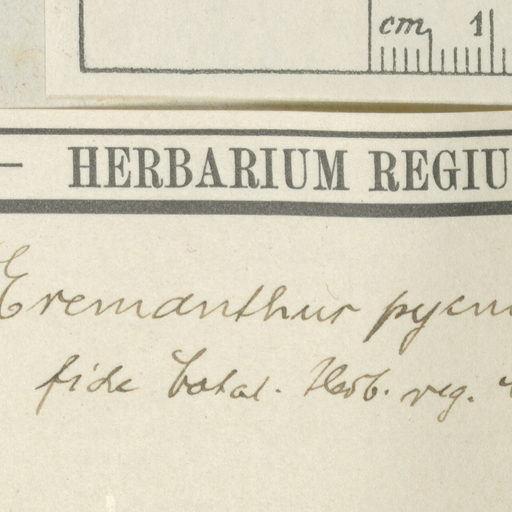 cm 1
— HERBARIUM REGIU
Eremanthus pycn
fide Catal. Herb. reg.